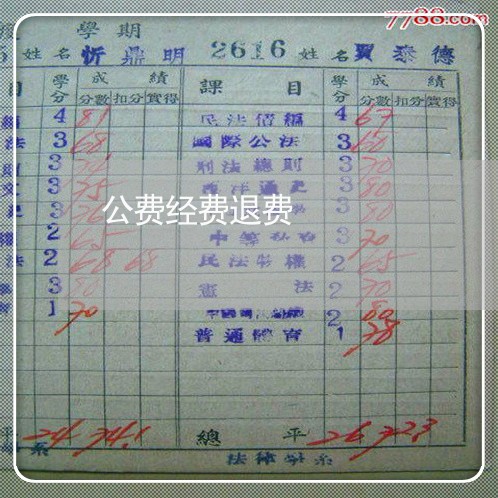 7788.com
學期
5 姓名 忻鼎明 2616 姓名 賈泰德
目 學分 成績 課目 學分 成績
分數 扣分 實得 分數 扣分 實得
4 81 民法債編 4 67
法 3 68 國際公法 3 60
3 刑法總則 3 70
文 3 75 西洋通史 3 80
公费经费退费
3 80
2 65 3 70
法 2 68 68 民法物權 2 65
3 80 憲法 2 70
1 70 2 80
普通體育 1 78
平 24 74.1 總平 26 72.3
系 法律學系